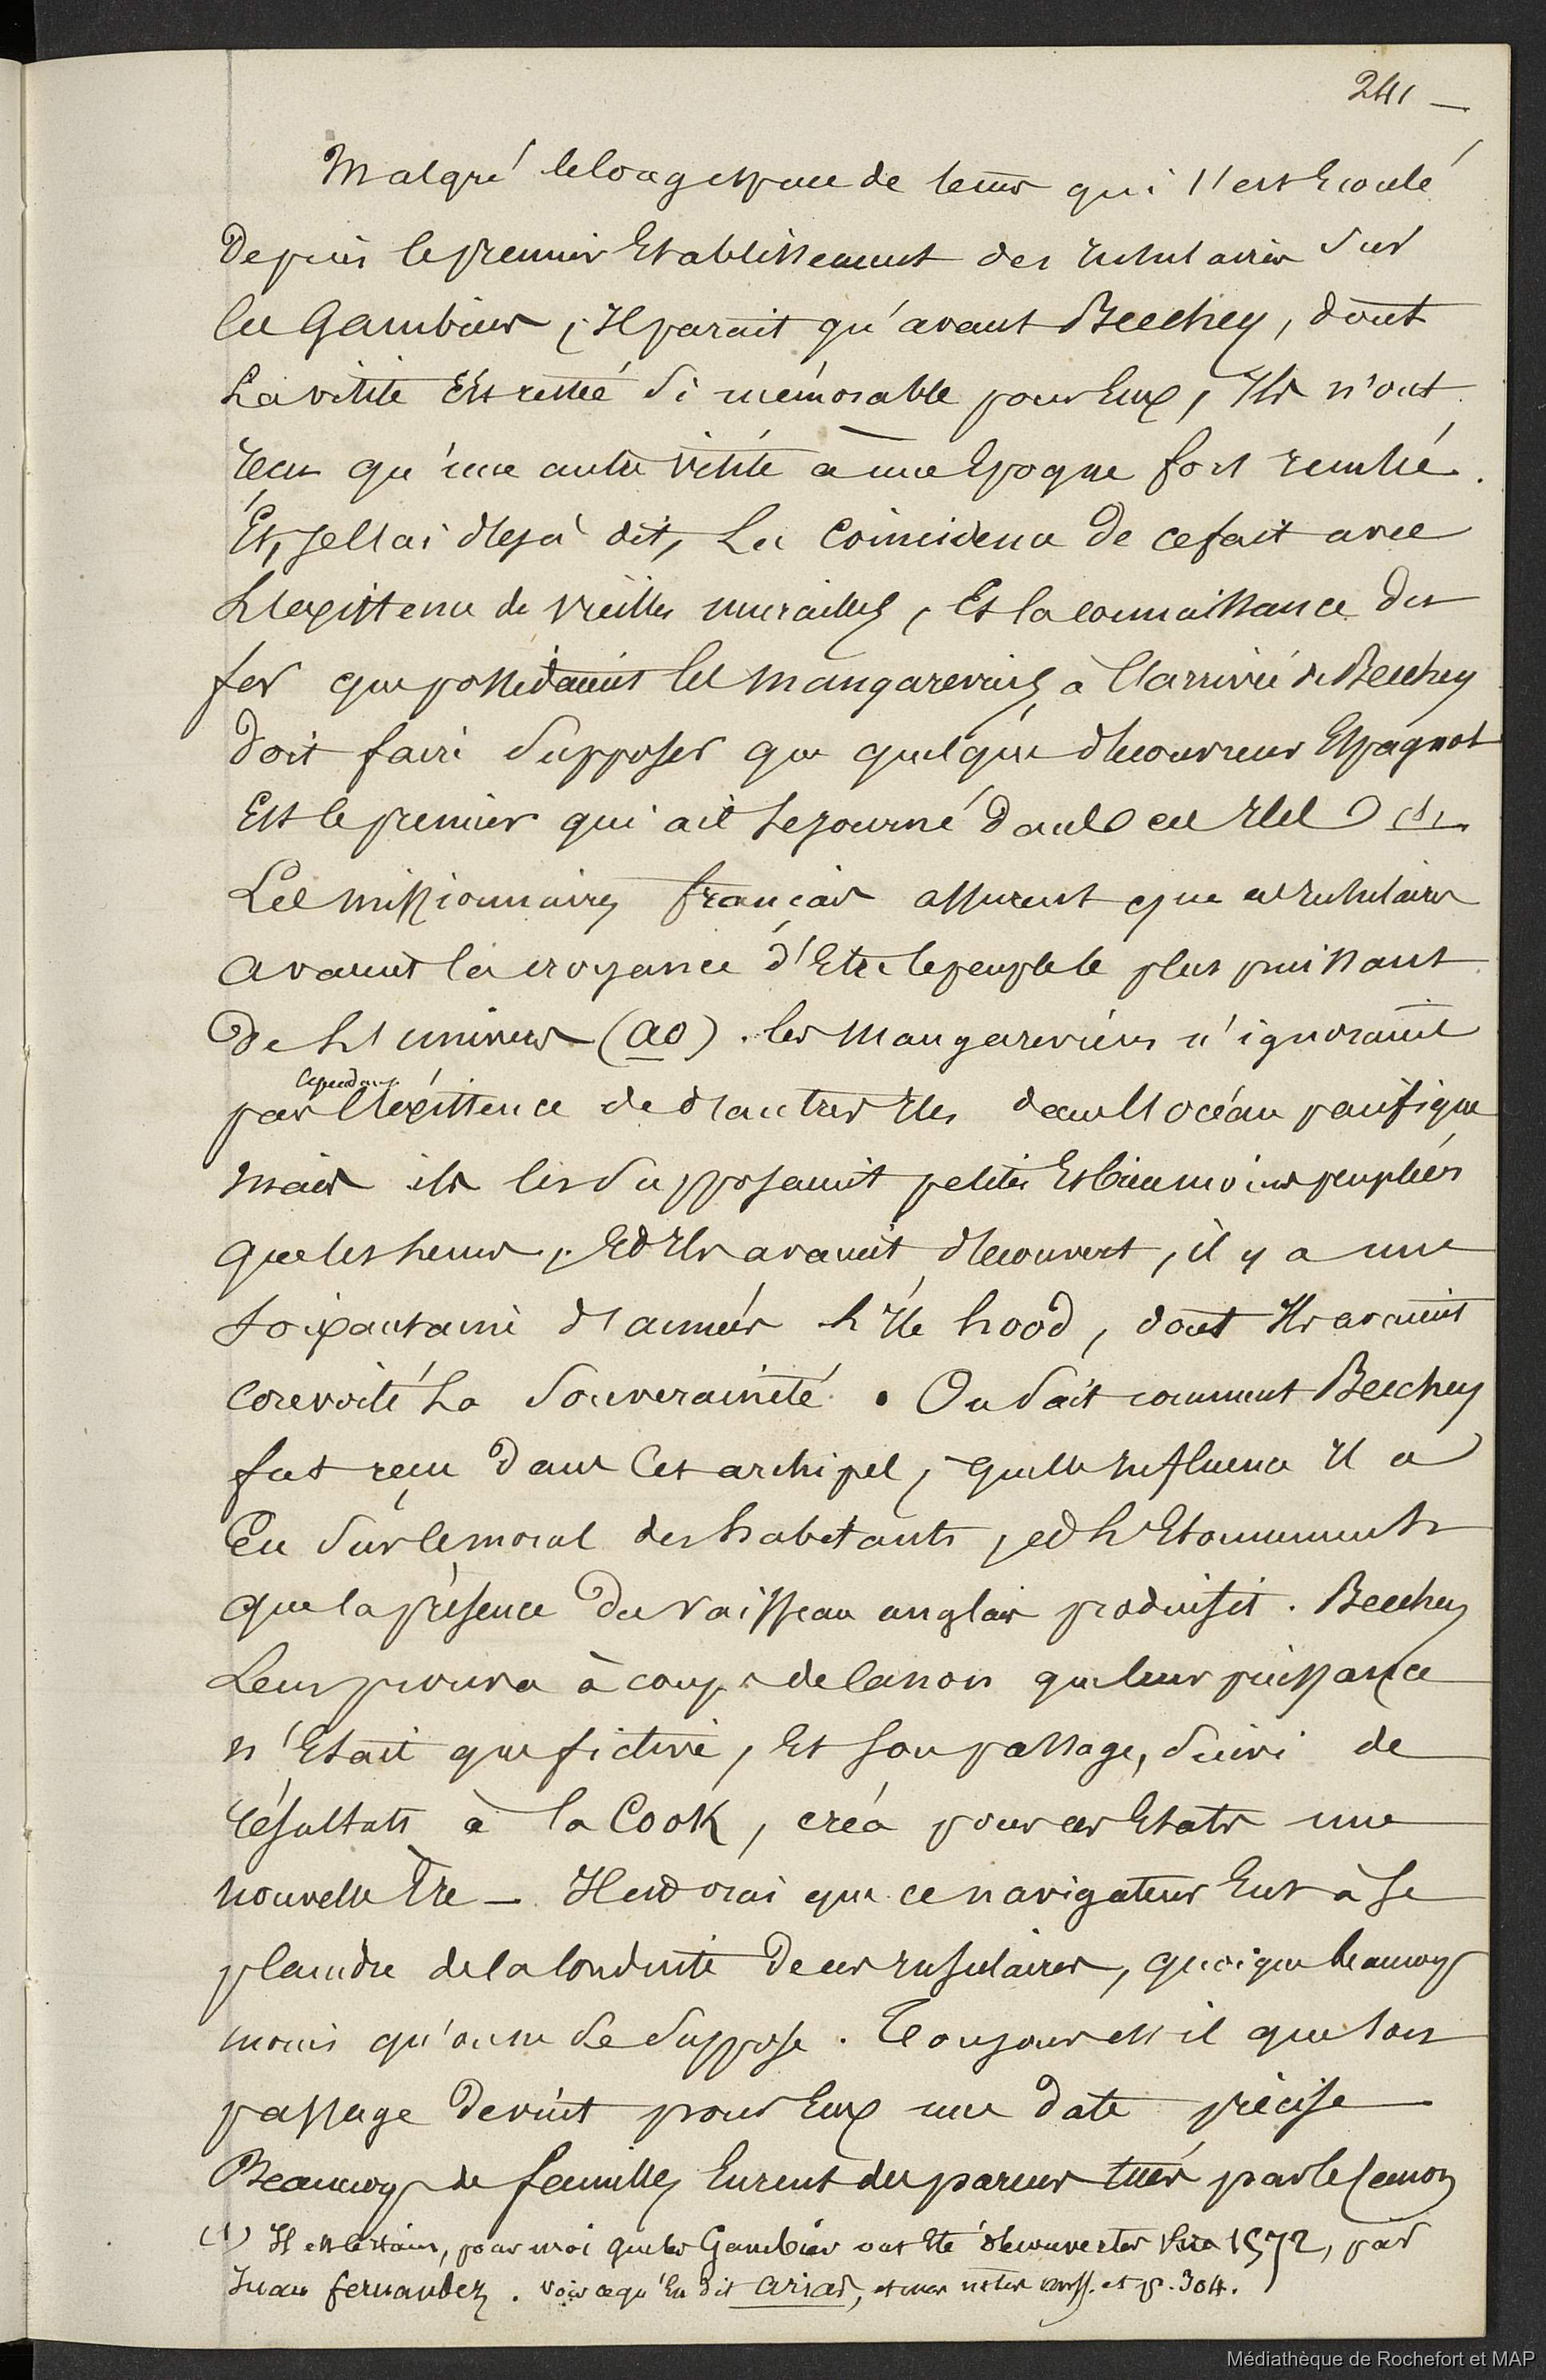 241 —
Malgré le long espace de tems qui s'est Ecoulé
Depuis le premier Etablissement des Insulaires sur
les Gambier, Il parait qu'avant Beechey, dont
La visite Est restée si mémorable pour Eux, Ils n'ont
reçu qu'une autre visite à une Epoque fort reculée.
Et, je l'ai déjà dit, La Coïncidence De ce fait avec
L'existence de vieilles murailles, Et la connaissance du
fer que possédaient les Mangareviens, à l'arrivée de Beechey
Doit faire supposer que quelque découvreur Espagnol
Est le premier qui ait séjourné dans ces Iles (1)
Les missionnaires français assurent que ces Insulaires
avaient la croyance d'Etre le peuple le plus puissant
De L'univers (ao). les Mangareviens n'ignoraient
cependant
pas l'existence de d'autres Iles dans l'océan pacifique
mais ils les supposaient petites Et bien moins peuplées
que les leurs, Et Ils avaient découvert, il y a une
soixantaine d'années L'Ile hood, dont Ils avaient
convoité La souveraineté. On sait comment Beechey
fut reçu Dans Cet archipel, quelle Influence Il a
Eu sur le moral des habitants, et L'Etonnement
que la présence Du vaisseau anglais produisit. Beechey
Leur prouva à coups de Canon que leur puissance
n'Etait que fictive, Et son passage, suivi de
résultats à la Cook, créa pour ces Etats une
nouvelle Ere — Il est vrai que ce navigateur Eut à se
plaindre de la Conduite De ces Insulaires, quoique beaucoup
moins qu'on ne le suppose. Toujours est il que son
passage Devint pour Eux une Date précise
Beaucoup de familles Eurent des parens tués par le Canon
(1) Il est Certain, pour moi que les Gambier ont Eté découvertes 1572, par
Juan fernandez. voir ce qu'En dit Arias, et mes notes mss. et p. 304.
Médiathèque de Rochefort et MAP